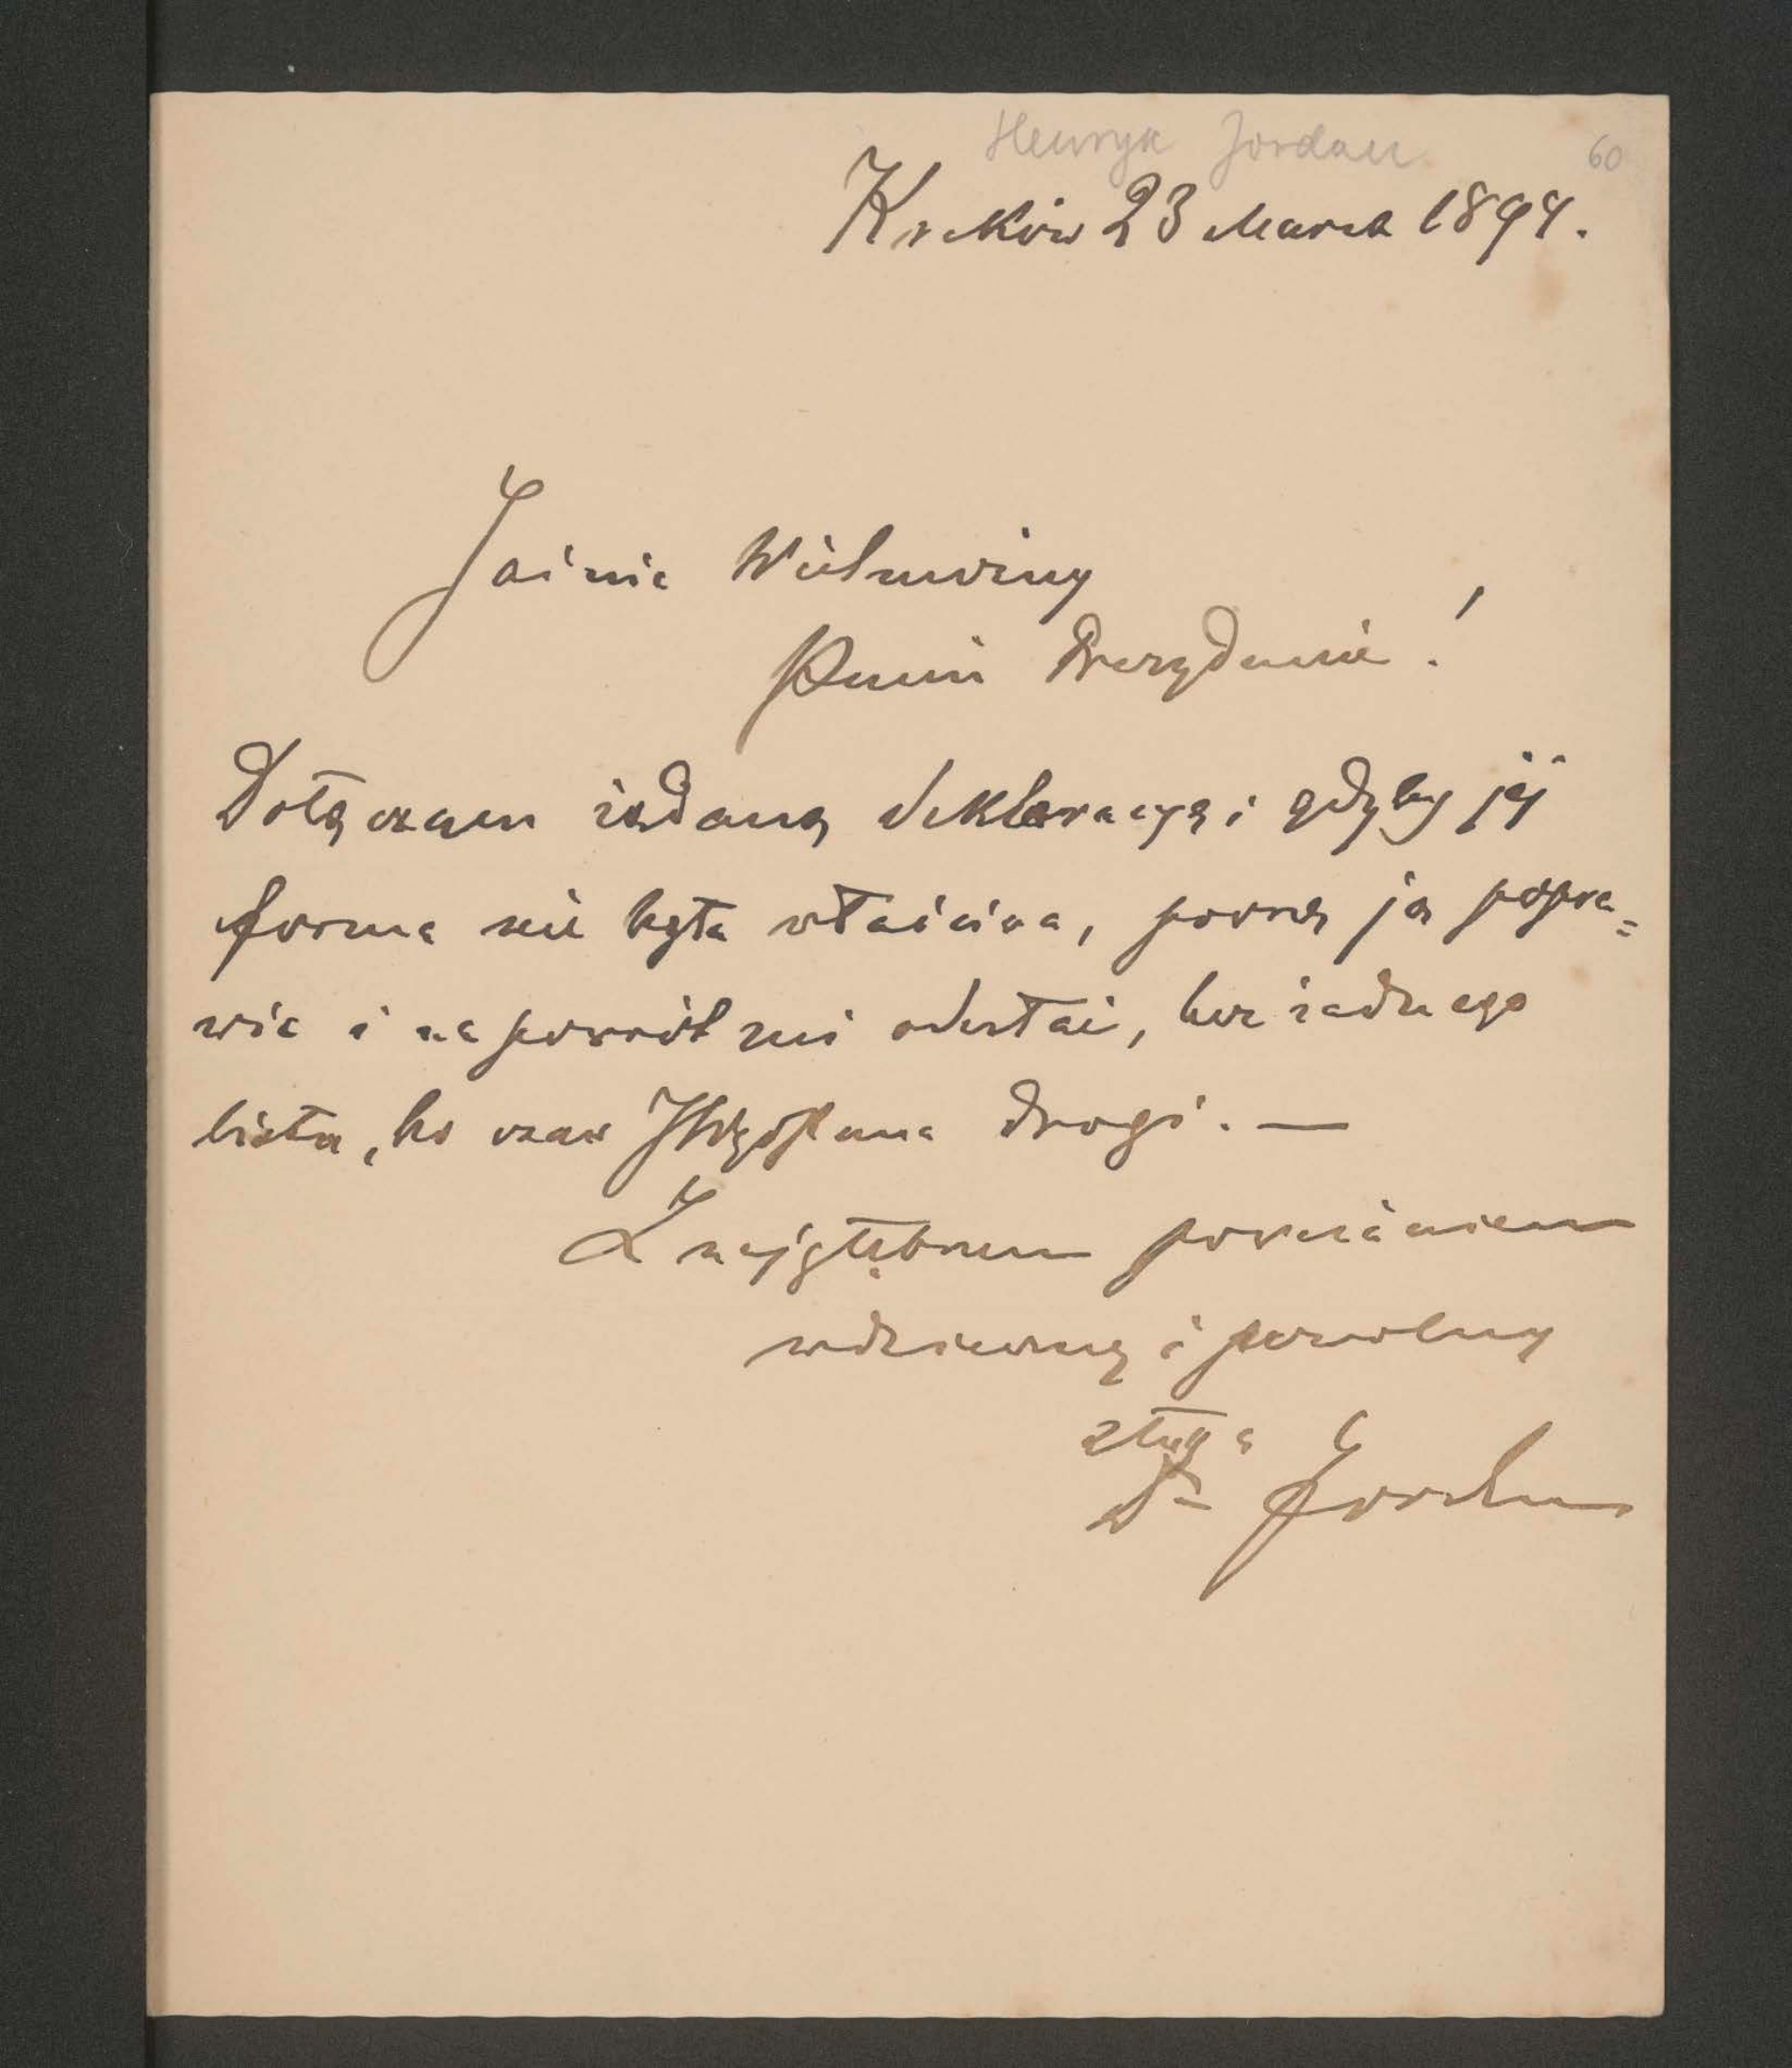 Henryk Jordan 60
Kraków 23 Marca 1894.
Jaśnie Wielmożny
Panie Prezydencie!
Dołączam żądaną deklaracyę i gdyby jej
forma nie była właściwa, proszę ją popra=
wić i na powrót mi odesłać, bez żadnego
listu, bo czas JWgoPana drogi. —
Z najgłębszem poważaniem
wdzięczny i powolny
sługa
Dr Jordan